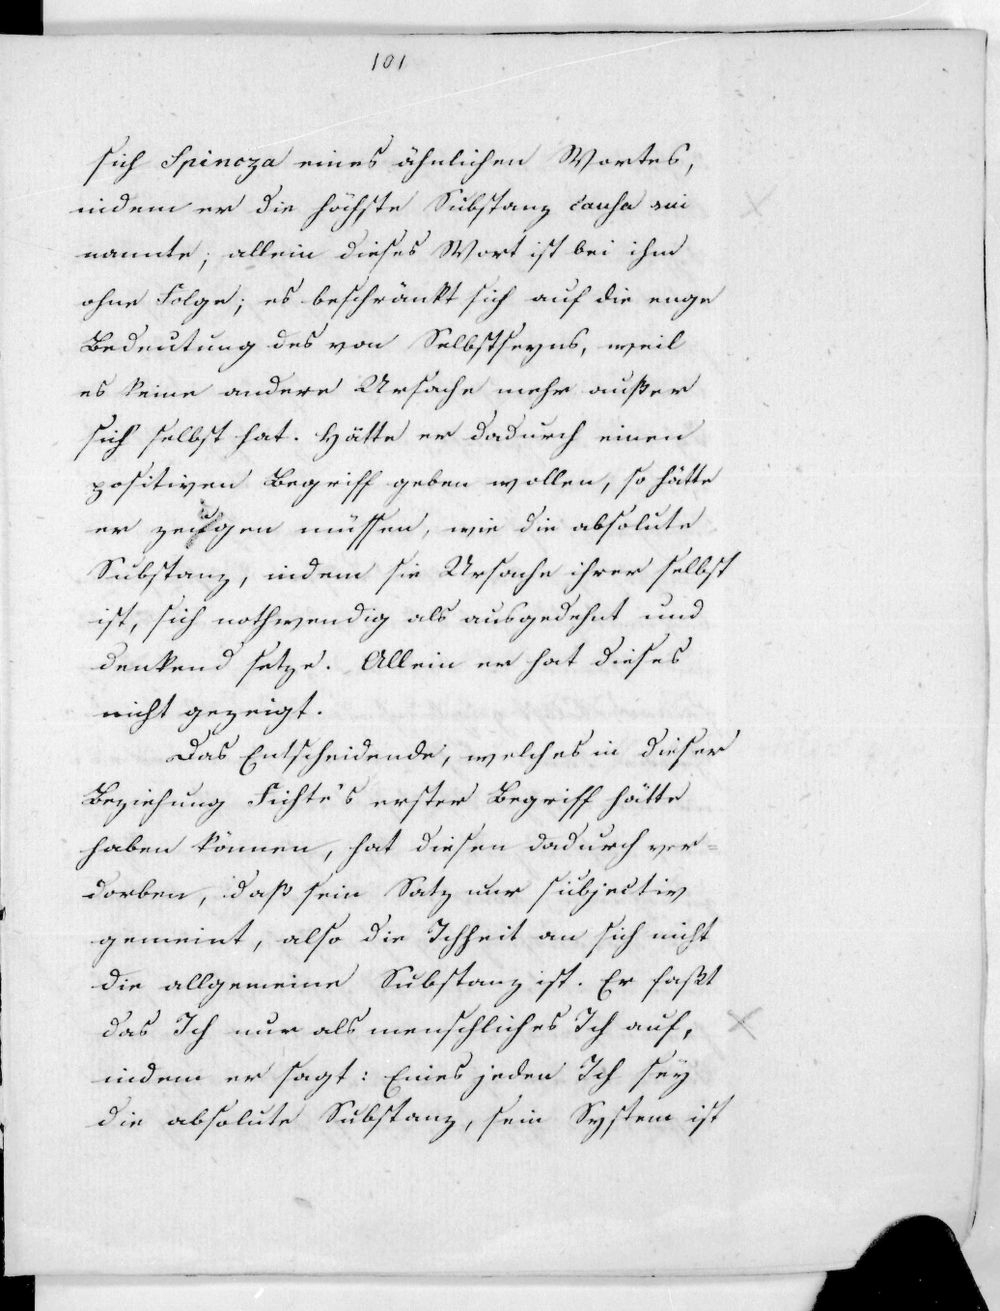 101
sich Spinoza eines ähnlichen Wortes,
indem er die höchste Substanz causa sui
nannte; allein dieses Wort ist bei ihm
ohne Folge; es beschränkt sich auf die enge
Bedeutung des von Selbstseyns, weil
es keine andere Ursache mehr außer
sich selbst hat. Hätte er dadurch einen
positiven Begriff geben wollen, so hätte
er zeigen müssen, wie die absolute
Substanz, indem sie Ursache ihrer selbst
ist, sich nothwendig als ausgedehnt und
denkend setze. Allein er hat dieses
nicht gezeigt.
Das Entscheidende, welches in dieser
Beziehung Fichte's erster Begriff hätte
haben können, hat diesen dadurch ver=
dorben, daß sein Satz nur subjectiv
gemeint, also die Ichheit an sich nicht
die allgemeine Substanz ist. Er faßt
das Ich nur als menschliches Ich auf,
indem er sagt: Eines jeden Ich sey
die absolute Substanz, sein System ist